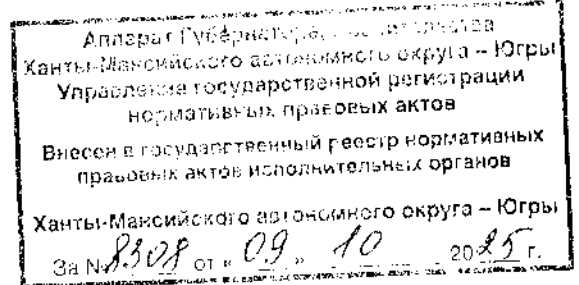 Аппарат Губернатора,
Ханты-Мансийского автономного округа – Югры
Управление государственной регистрации
нормативных правовых актов
Внесен в государственный реестр нормативных
правовых актов исполнительных органов
Ханты-Мансийского автономного округа – Югры
За № 8308 от « 09 » 10 2025 г.